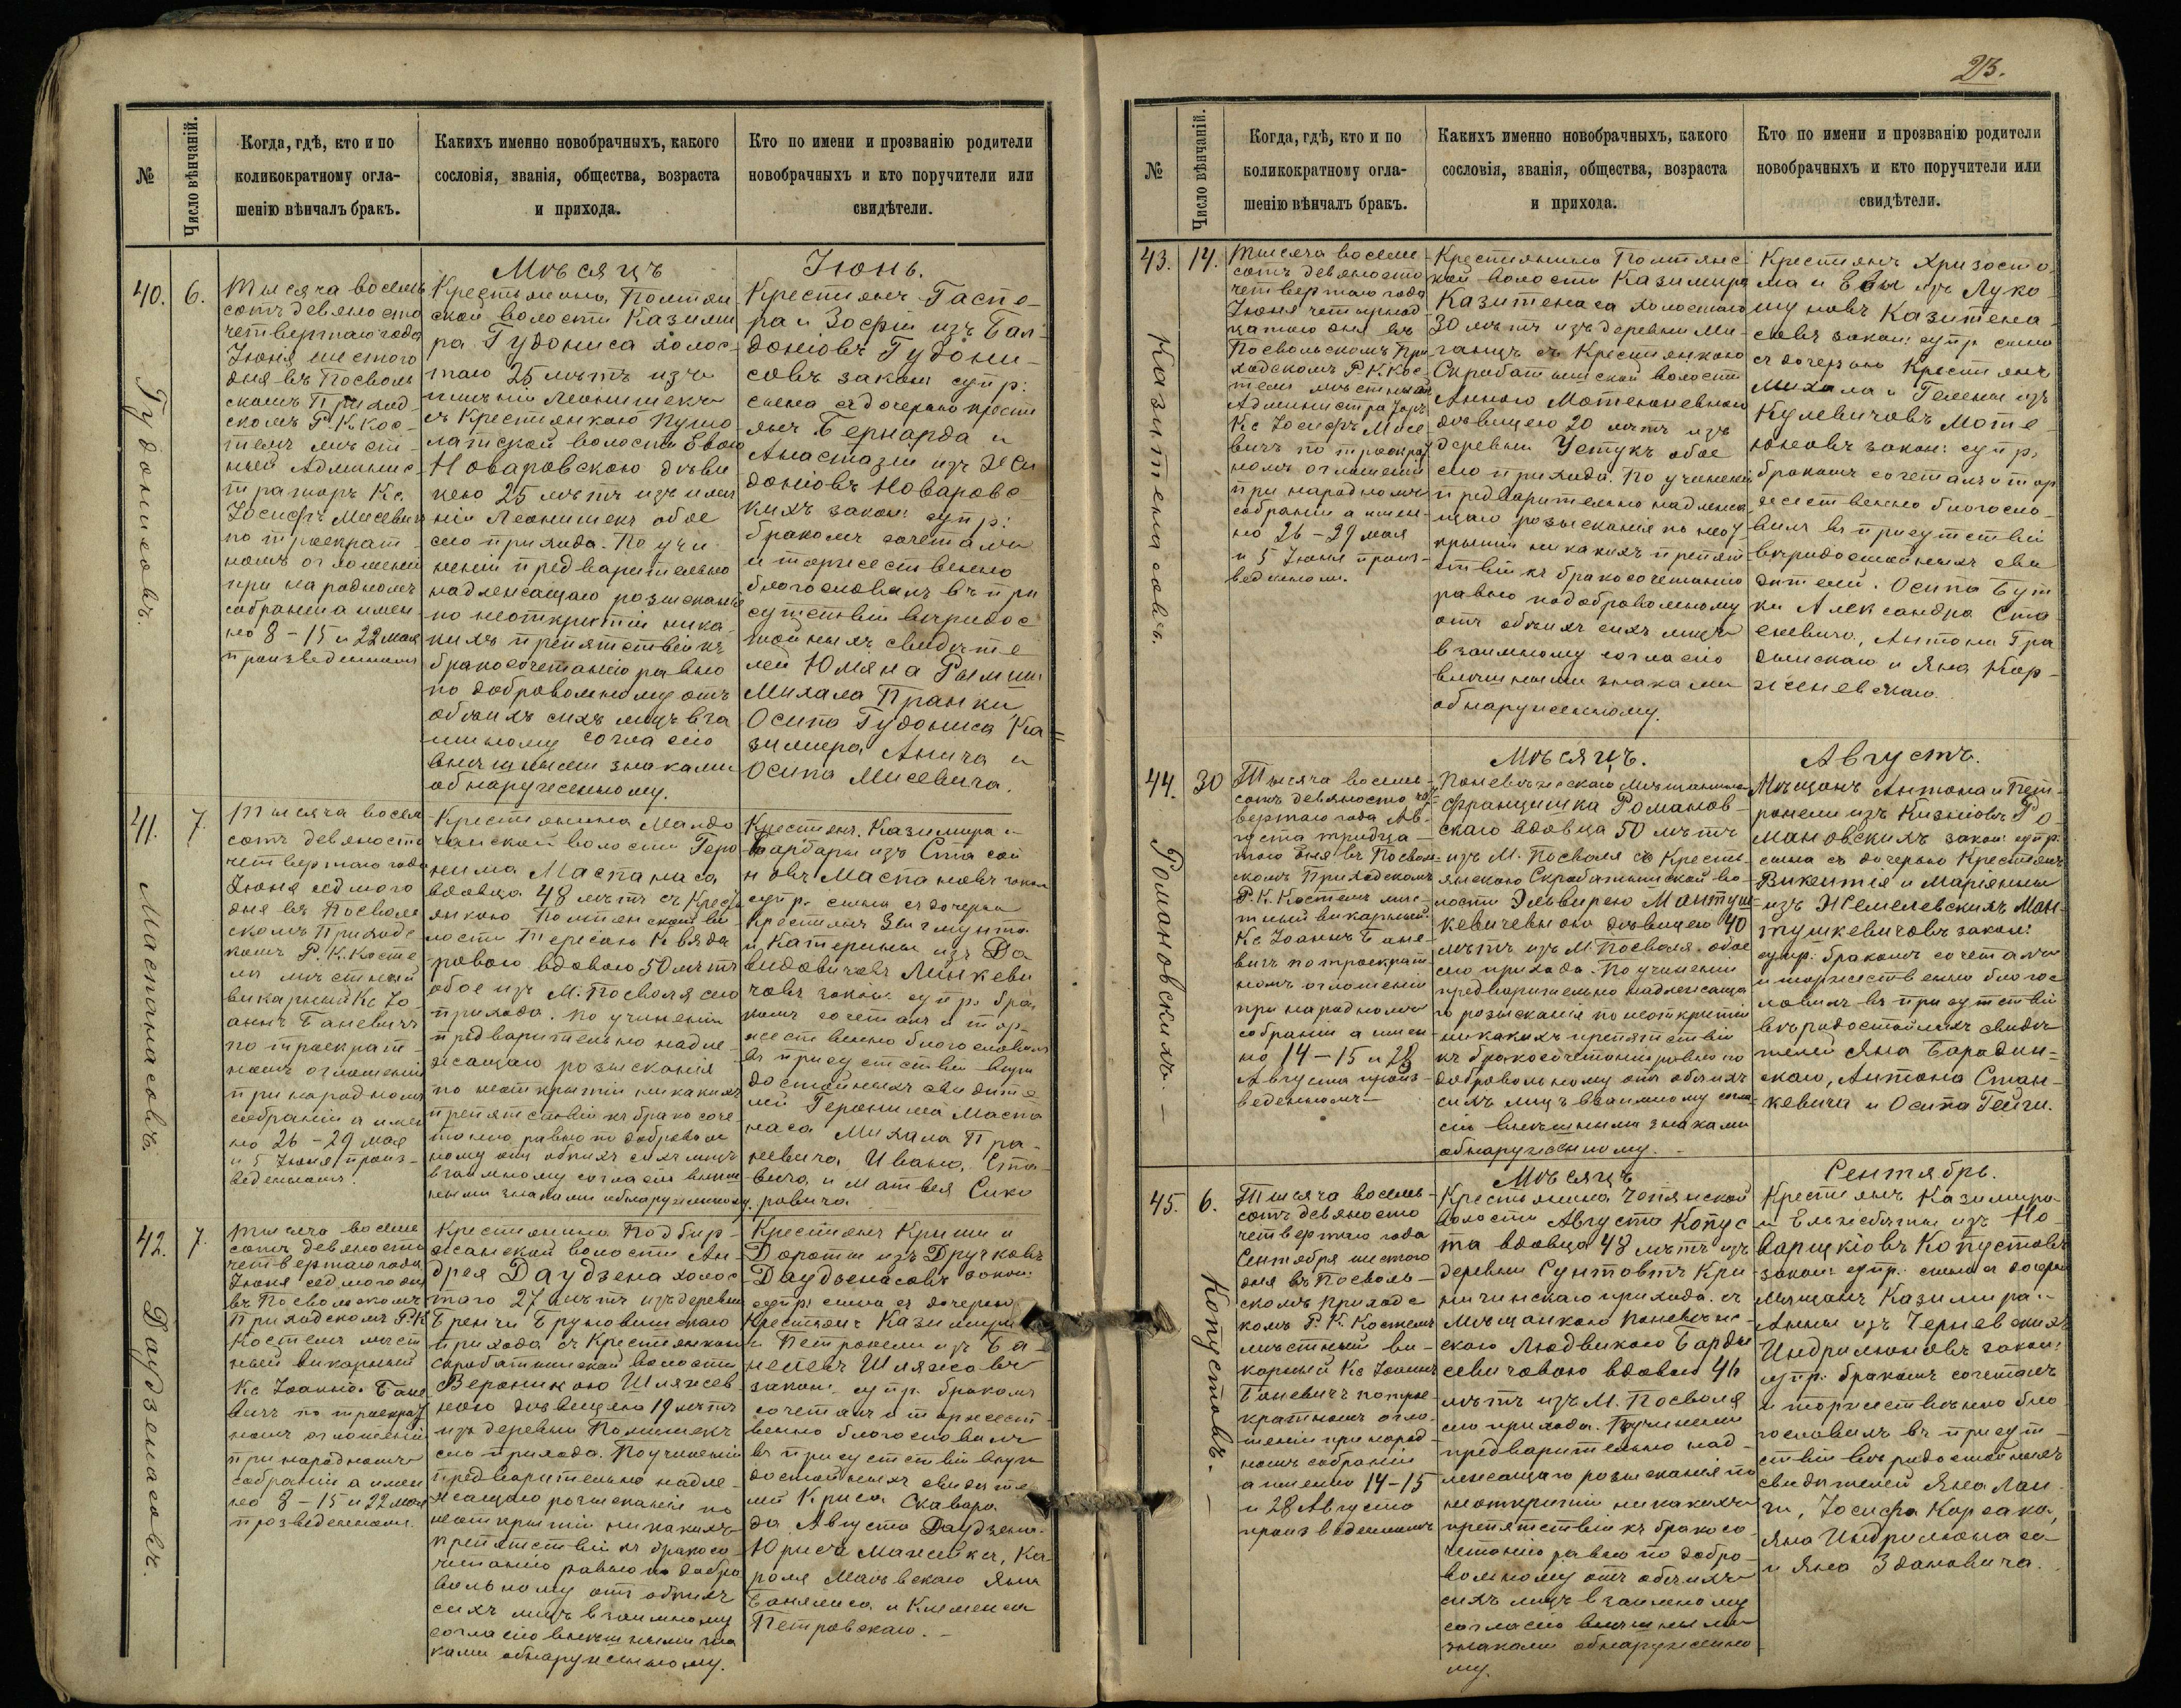 23.
№
Число вѣнчаній.
Когда, гдѣ, кто и по
коликократному огла-
шенію вѣнчалъ бракъ.
Какихъ именно новобрачныхъ, какого
сословія, званія, общества, возраста
и прихода.
Кто по имени и прозванію родители
новобрачныхъ и кто поручители или
свидѣтели.
Мѣсяцъ
Іюнь.
40.
6.
Гудонисовъ.
Тысяча восемь
сотъ девяносто
четвертаго года
Іюня шестого
дня въ Посволь
скомъ Приход
скомъ Р. К. кос-
телѣ мѣст
ный Админис-
траторъ Кс.
Іосифъ Мисевичъ
по троекрат
номъ оглошеніи
при народномъ
собраніи а имен
но 8 - 15 и 22 мая
произведенномъ
Крестьянина Помпян
ской волости Казими
ра Гудониса холос-
таго 25 лѣтъ изъ
имѣнія Леонишекъ
съ Крестьянкою Пумпо
латской волости Евою
Новаровскою дѣви
цею 25 лѣтъ изъ имѣ
нія Леонишекъ обое
сего прихода. По учи
неніи предварительно
надлежащаго розысканія
по неоткрытіи ника
кихъ препятствій къ
бракосочетанію равно
по добровольному отъ
обѣихъ сихъ лицъ вза
имному согласію
внѣшными знаками
обнаруженному.
Крестьянъ Гаспе-
ра и Зосфіи изъ Бал
доніовъ Гудони-
совъ закон: супр:
сына съ дочерью крестъ
янъ Бернарда и
Анастазіи изъ Жи
доніовъ Новаровс
кихъ закон: супр:
бракомъ сочеталъ
и торжественно
благословилъ въ при
сутствіи вѣридос
тойныхъ свидѣте
лей Юліяна Рымши
Михала Пранки
Осипа Гудониса Ка
зимера Анича и
Осипа Мисевича.
41.
7.
Маспанасовъ.
Тысяча восем
сотъ девяносто
четвертаго года
Іюня седмого
дня въ Посволь
скомъ Приходс
комъ Р. К. Косте
лѣ мѣстный
викарный Кс. Іо
аннъ Баневичъ
по троекрат-
номъ оглошеніи
при народномъ
собраніи а имен
но 26 - 29 мая
и 5 Іюня произ-
веденномъ.
Крестьянина Малдо
чанской волости Геро
нима Маспанаса
вдовца 48 лѣтъ съ Кресть
янкою Помпянской во
лости Тересою Квяда
ровою вдовою 50 лѣтъ
обое изъ М. Посволя сего
прихода. По учиненіи
предварительно надле-
жащаго розысканія
по неоткрытіи никакихъ
препятствій къ бракосоче
танію равно по доброволь
ному отъ обѣихъ сихъ лицъ
взаимному согласію внѣш
ными знаками обнаруженному.
Крестьянъ Казимира и
Барбары изъ Стасей
новъ Маспановъ закон
супр. сына съ дочерью
Крестьянъ Зыгмунта
и Катерины изъ Да
видовичовъ Минкеви
човъ закон: супр. бра
комъ сочеталъ и тор-
жественно благословилъ
въ присутствіи вѣри
достойныхъ свидѣте
лей Геронима Маспа
наса Михала Пра-
невича, Ивана
и Матвея
42.
7.
Даудзенасовъ.
Тысяча восемь
сотъ девяносто
четвертаго года
Іюня седмого дня
въ Посвольскомъ
Приходскомъ Р. К
Костелѣ мѣст
ный викарный
Кс Іоаннъ Бане
вичъ по троекрат
номъ оглошеніи
при народномъ
собраніи а имен
но 8 - 15 и 22 мая
произведенномъ.
Крестьянина Подбир-
жанской волости Ан-
дрея Даудзена холос
таго 27 лѣтъ изъ деревни
Бренчи Бруновишскаго
прихода съ Крестьянкою
Скробатишской волости
Вероникою Шляжев-
ною дѣвицею 19 лѣтъ
изъ деревни Помишекъ
сего прихода. По учиненіи
предварительно надле-
жащаго розысканія по
неоткрытіи никакихъ
препятствій къ бракосо
четанію равно по добро
вольному отъ обѣихъ
сихъ лицъ взаимному
согласію внѣшными зна
ками обнаруженному.
Крестьянъ Криша и
Дороты изъ Дручковъ
Даудзенасовъ закон:
супр: сына съ дочерью
Крестьянъ Казимира
и Петронели изъ Ба-
неневъ Шляжовъ
закон: супр. бракомъ
сочеталъ и торжест
венно благословилъ
въ присутствіи вѣри
достойныхъ свидѣте
лей Криса Скавара
да, Августа Даудзена
Юриса Манейка, Ка
роля Маевскаго Яна
Банялиса и Клеменса
Петровскаго.
№
Число вѣнчаній.
Когда, гдѣ, кто и по
коликократному огла-
шенію вѣнчалъ бракъ.
Какихъ именно новобрачныхъ, какого
сословія, званія, общества, возраста
и прихода.
Кто по имени и прозванію родители
новобрачныхъ и кто поручители или
свидѣтели.
43.
14.
Казитенасовъ.
Тысяча восемь
сотъ девяносто
четвертаго года
Іюня четырнад
цатого дня въ
Посвольскомъ При
ходскомъ Р. К Кос
телѣ мѣстный
Администраторъ
Кс Іосифъ Мисе
вичъ по троекрат
номъ оглошеніи
при народномъ
собраніи а имен-
но 26 - 29 мая
и 5 Іюня произ-
веденномъ.
Крестьянина Помпянс-
кой волости Казимира
Казитенаса холостаго
30 лѣтъ изъ деревни Ми-
ганцъ съ Крестьянкою
Скробатишской волости
Анною Мотеюневною
дѣвицею 20 лѣтъ изъ
деревни Устукъ обое
сего прихода. По учиненіи
предварительно надлежа
щаго розысканія по неот
крытіи никакихъ препят
ствій къ бракосочетанію
равно по добровольному
отъ обѣихъ сихъ лицъ
взаимному согласію
внѣшными знаками
обнаруженному.
Крестьянъ Хризосто
ма и Евы изъ Луко
шуновъ Казитена
совъ закон: супр сына
съ дочерью Крестьянъ
Михала и Гелены изъ
Кулевичовъ Моте-
юновъ закон: супр.
бракомъ сочеталъ и тор
жественно благосло-
вилъ въ присутствіи
вѣридостойныхъ сви
дѣтелей. Осипа Бут
ки Александра Ста
сневича, Антона Гра
дынскаго и Яна Кор-
женевскаго.
Мѣсяцъ.
Августъ.
44.
30
Романовскихъ. —
Тысяча восемь-
сотъ девяносто че
твертаго года Ав-
густа тридца-
таго дня въ Посволь-
скомъ Приходскомъ
Р. К. Костелѣ мѣс-
тный викарный
Кс Іоаннъ Бане-
вичъ по троекрат
номъ оглошеніи
при народномъ
собраніи а имен
но 14 - 15 и 28
Августа произ-
веденномъ
Поневѣжскаго Мѣщанина
Францишка Романов-
скаго вдовца 50 лѣтъ
изъ М. Посволя съ Кресть-
янкою Скробатышской во-
лости Эльвирею Мантуш
кевичевною дѣвицею 40
лѣтъ изъ М. Посволя. обое
сего прихода. По учиненіи
предварительно надлежаща
го розысканія по неоткрытіи
никакихъ препятствій
къ бракосочетанію равно по
добровольному отъ обѣихъ
сихъ лицъ взаимному согла-
сію внѣшными знаками
обнаруженному. -
Мѣщанъ Антона и Пет-
ронели изъ Кизніовъ Ро-
мановскихъ закон: супр.
сына съ дочерью Крестьянъ
Викентія и Маріянны
изъ Жемелевскихъ Ман-
тушкевичовъ закон:
супр. бракомъ сочеталъ
и торжественно благос
ловилъ въ присутствіи
вѣридостойныхъ свидѣ
телей Яна Барадин-
скаго, Антона Стан-
кевича и Осипа Гейги.
Мѣсяцъ
Сентябрь.
45.
6.
Копустовъ. —
Тысяча восемь-
сотъ девяносто
четвертаго года
Сентября шестого
дня въ Посволь-
скомъ Приходс
комъ Р. К. Костелѣ
мѣстный ви-
карный Кс Іоаннъ
Баневичъ по трое
кратномъ огло-
шеніи при народ-
номъ собраніи
а именно 14-15
и 28 Августа
произведенномъ
Крестьянина Чопянской
волости Августа Копус
та вдовца 48 лѣтъ изъ
деревни Сунтовтъ Кри
ничинскаго прихода. съ
Мѣщанкою Поневѣжс-
скою Людвикою Барды
севичовою вдовою 46
лѣтъ изъ М. Посволя
сего прихода. По учиненіи
предварительно над-
лежащаго розысканія по
неоткрытіи никакихъ
препятствій къ бракосо
четанію равно по добро-
вольному отъ обѣихъ
сихъ лицъ взаимному
согласію внѣшными
знаками обнаруженно
му.
Крестьянъ Казимира
и Ельжебеты изъ Но-
варцкіовъ Копустовъ
закон: супр. сына съ дочерью
Мѣщанъ Казимира и
Анны изъ Черневскихъ
Индрилюновъ закон:
супр. бракомъ сочеталъ
и торжественно бла
гословилъ въ присут-
ствіи вѣридостойныхъ
свидѣтелей Яна Лан-
ги, Іосифа Карсака,
Яна Индрилюнаса
и Яна Здановича.